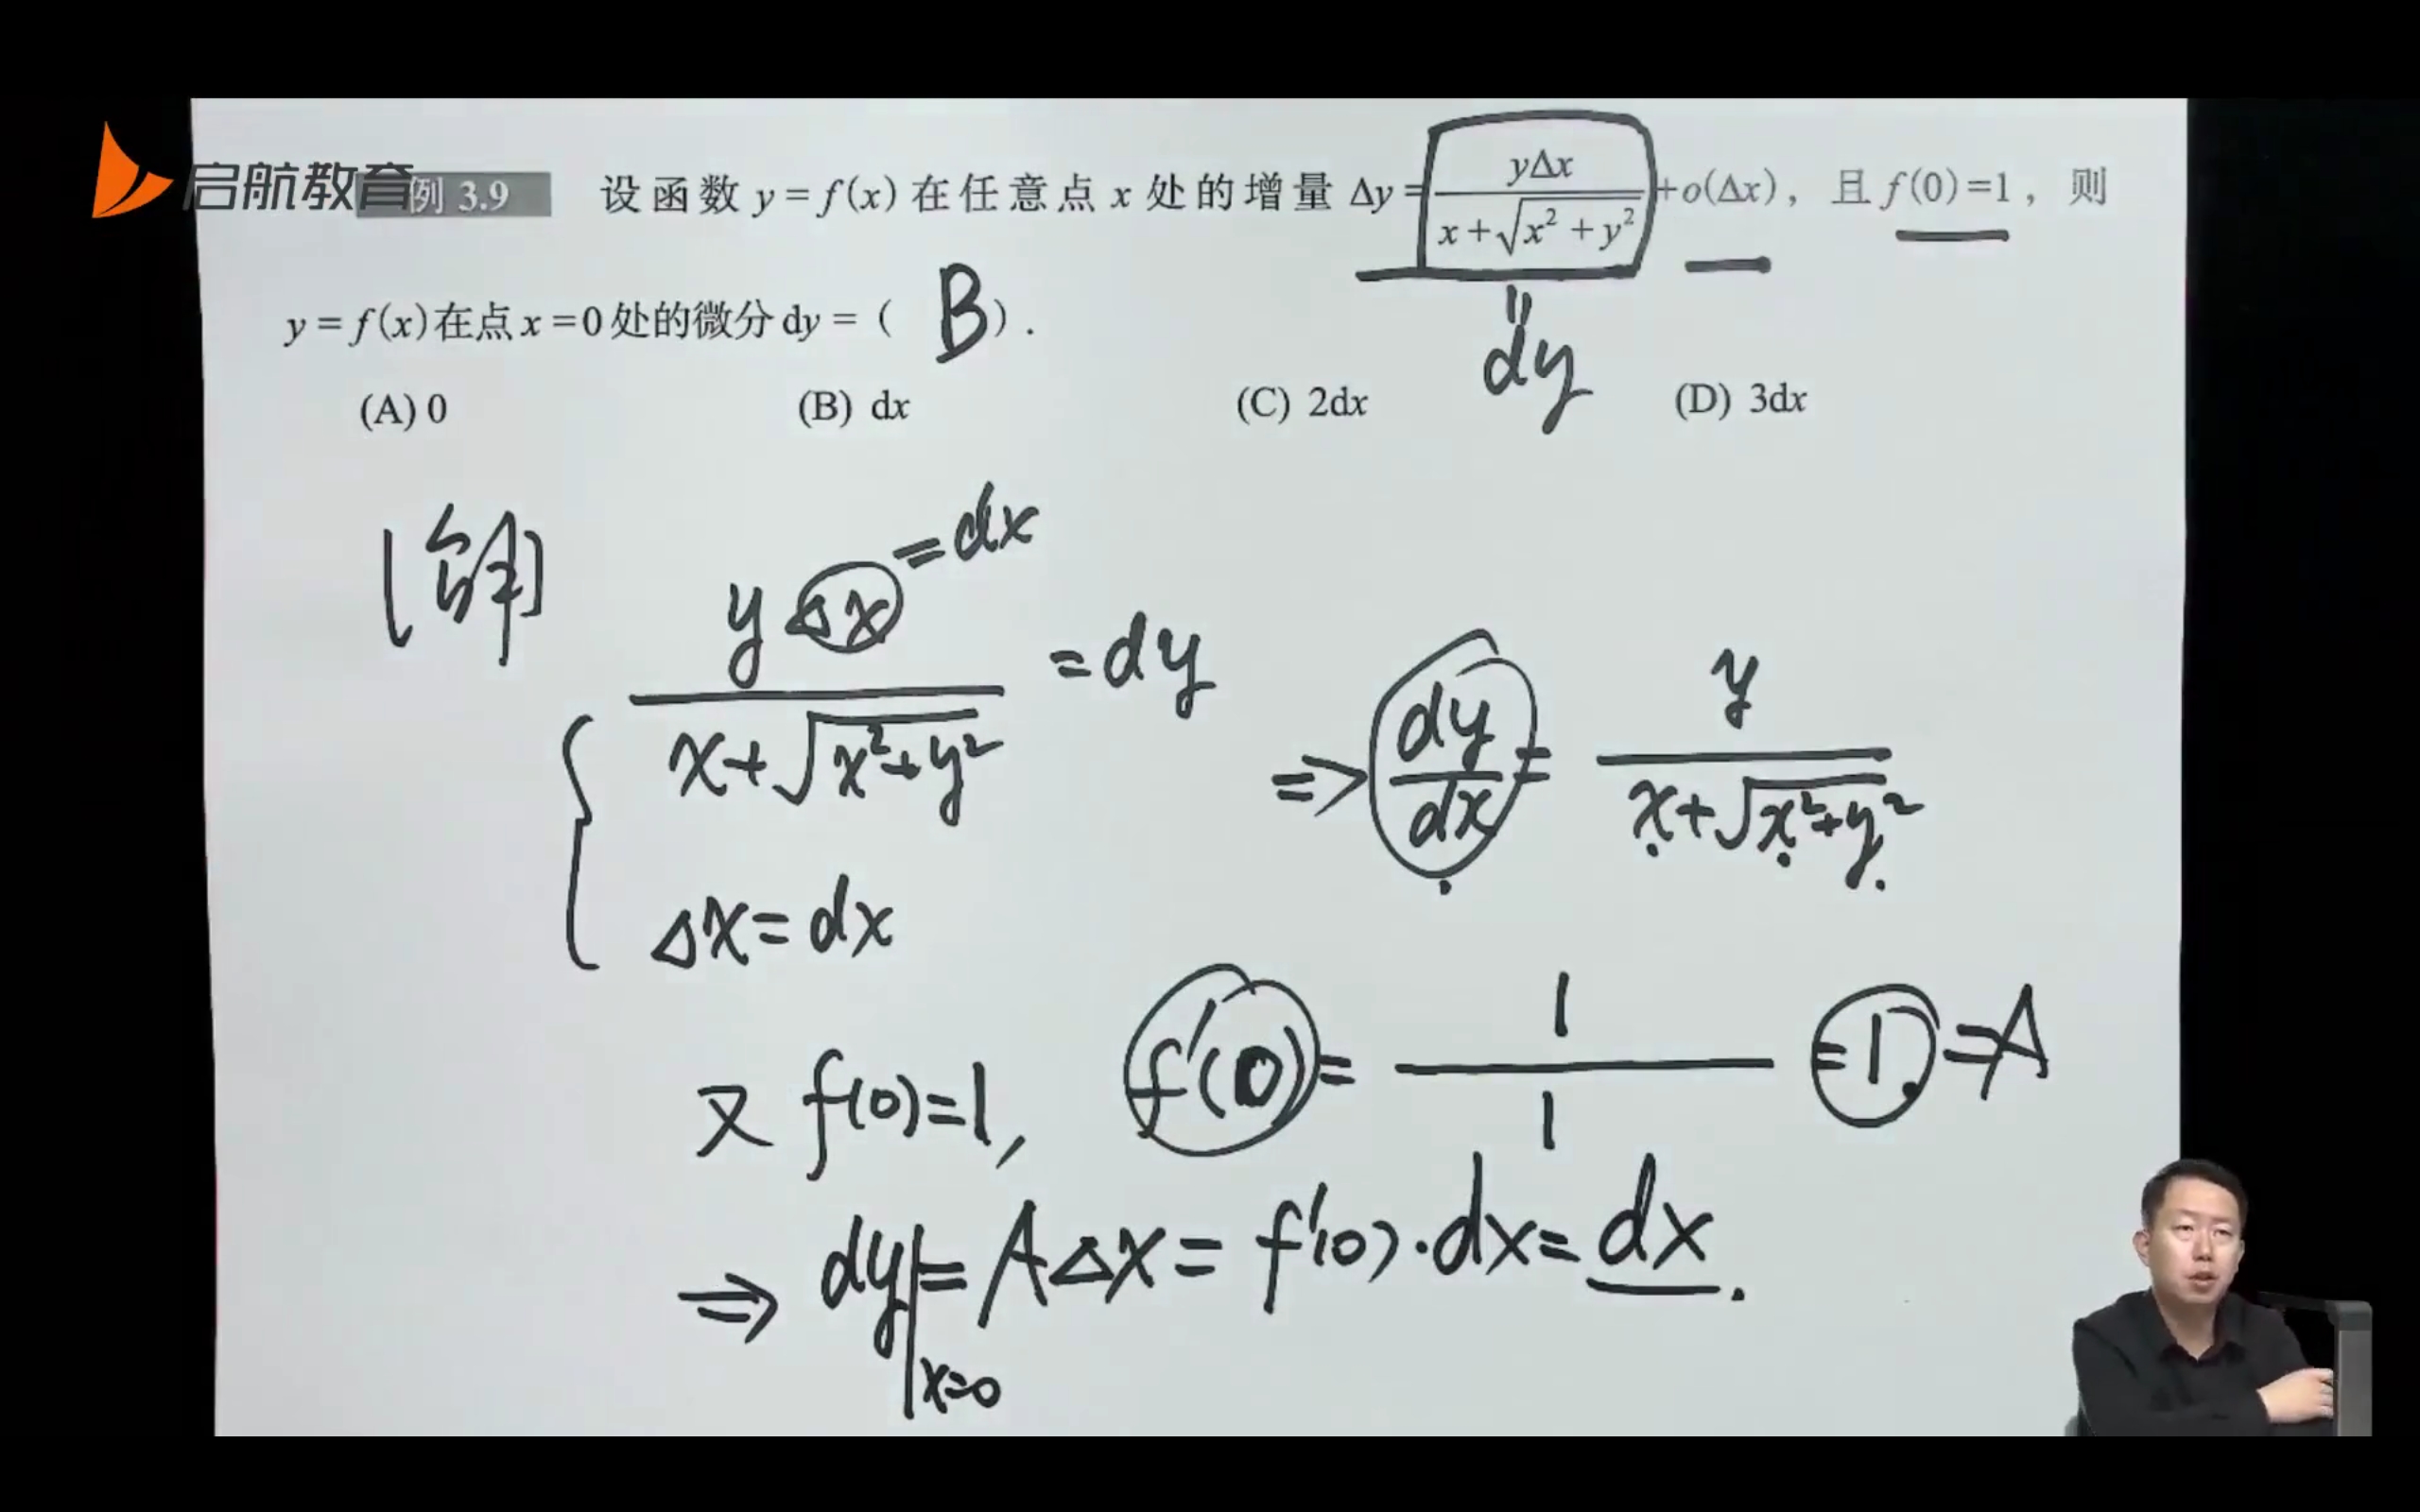 启航教育
例 3.9 设函数 y=f(x) 在任意点 x 处的增量 Δy = yΔx / (x+√(x²+y²)) + o(Δx), 且 f(0)=1, 则
y=f(x)在点x=0处的微分dy=( B ).
= dy
(A) 0 (B) dx (C) 2dx (D) 3dx
[解]
yΔx / (x+√(x²+y²)) = dy
Δx = dx
= dx
⇒ dy/dx = y / (x+√(x²+y²))
Δx = dx
又 f(0)=1, f'(0) = 1/1 = 1. = A
⇒ dy|x=0 = AΔx = f'(0)·dx = dx.